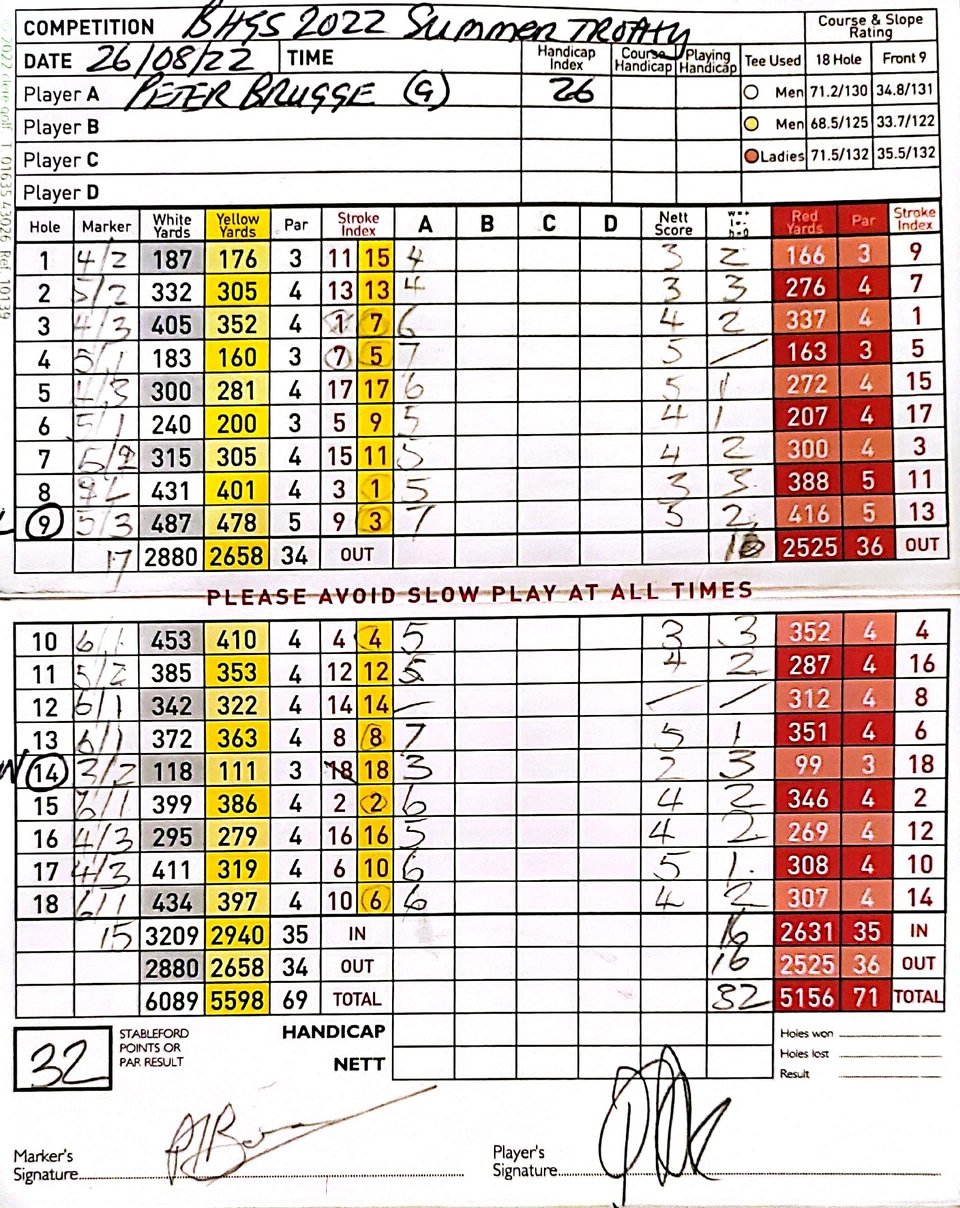 COMPETITION BHGS 2022 SUMMER TROPHY Course & Slope Rating
DATE 26/08/22 TIME Handicap Index Course Handicap Playing Handicap Tee Used 18 Hole Front 9
Player A PETER BRUGGE (G) 26 Men 71.2/130 34.8/131
Player B Men 68.5/125 33.7/122
Player C Ladies 71.5/132 35.5/132
Player D
Hole Marker White Yards Yellow Yards Par Stroke Index A B C D Nett Score W=+ L=- H=0 Red Yards Par Stroke Index
1 4/2 187 176 3 11 15 4 3 2 166 3 9
2 5/2 332 305 4 13 13 4 3 3 276 4 7
3 4/3 405 352 4 1 7 6 4 2 337 4 1
4 5/1 183 160 3 7 5 7 5 / 163 3 5
5 4/3 300 281 4 17 17 6 5 1 272 4 15
6 5/1 240 200 3 5 9 5 4 1 207 4 17
7 5/2 315 305 4 15 11 5 4 2 300 4 3
8 431 401 4 3 1 5 3 3 388 5 11
9 5/3 487 478 5 9 3 7 5 2 416 5 13
17 2880 2658 34 OUT 16 2525 36 OUT
PLEASE AVOID SLOW PLAY AT ALL TIMES
10 6/1 453 410 4 4 4 5 3 3 352 4 4
11 5/2 385 353 4 12 12 5 4 2 287 4 16
12 6/1 342 322 4 14 14 — / / 312 4 8
13 6/1 372 363 4 8 8 7 5 1 351 4 6
14 3/2 118 111 3 18 18 3 2 3 99 3 18
15 7/1 399 386 4 2 2 6 4 2 346 4 2
16 4/3 295 279 4 16 16 5 4 2 269 4 12
17 4/3 411 319 4 6 10 6 5 1 308 4 10
18 6/1 434 397 4 10 6 6 4 2 307 4 14
15 3209 2940 35 IN 16 2631 35 IN
2880 2658 34 OUT 16 2525 36 OUT
6089 5598 69 TOTAL 32 5156 71 TOTAL
32 STABLEFORD POINTS OR PAR RESULT HANDICAP Holes won
NETT Holes lost
Result
Marker's Signature
Player's Signature